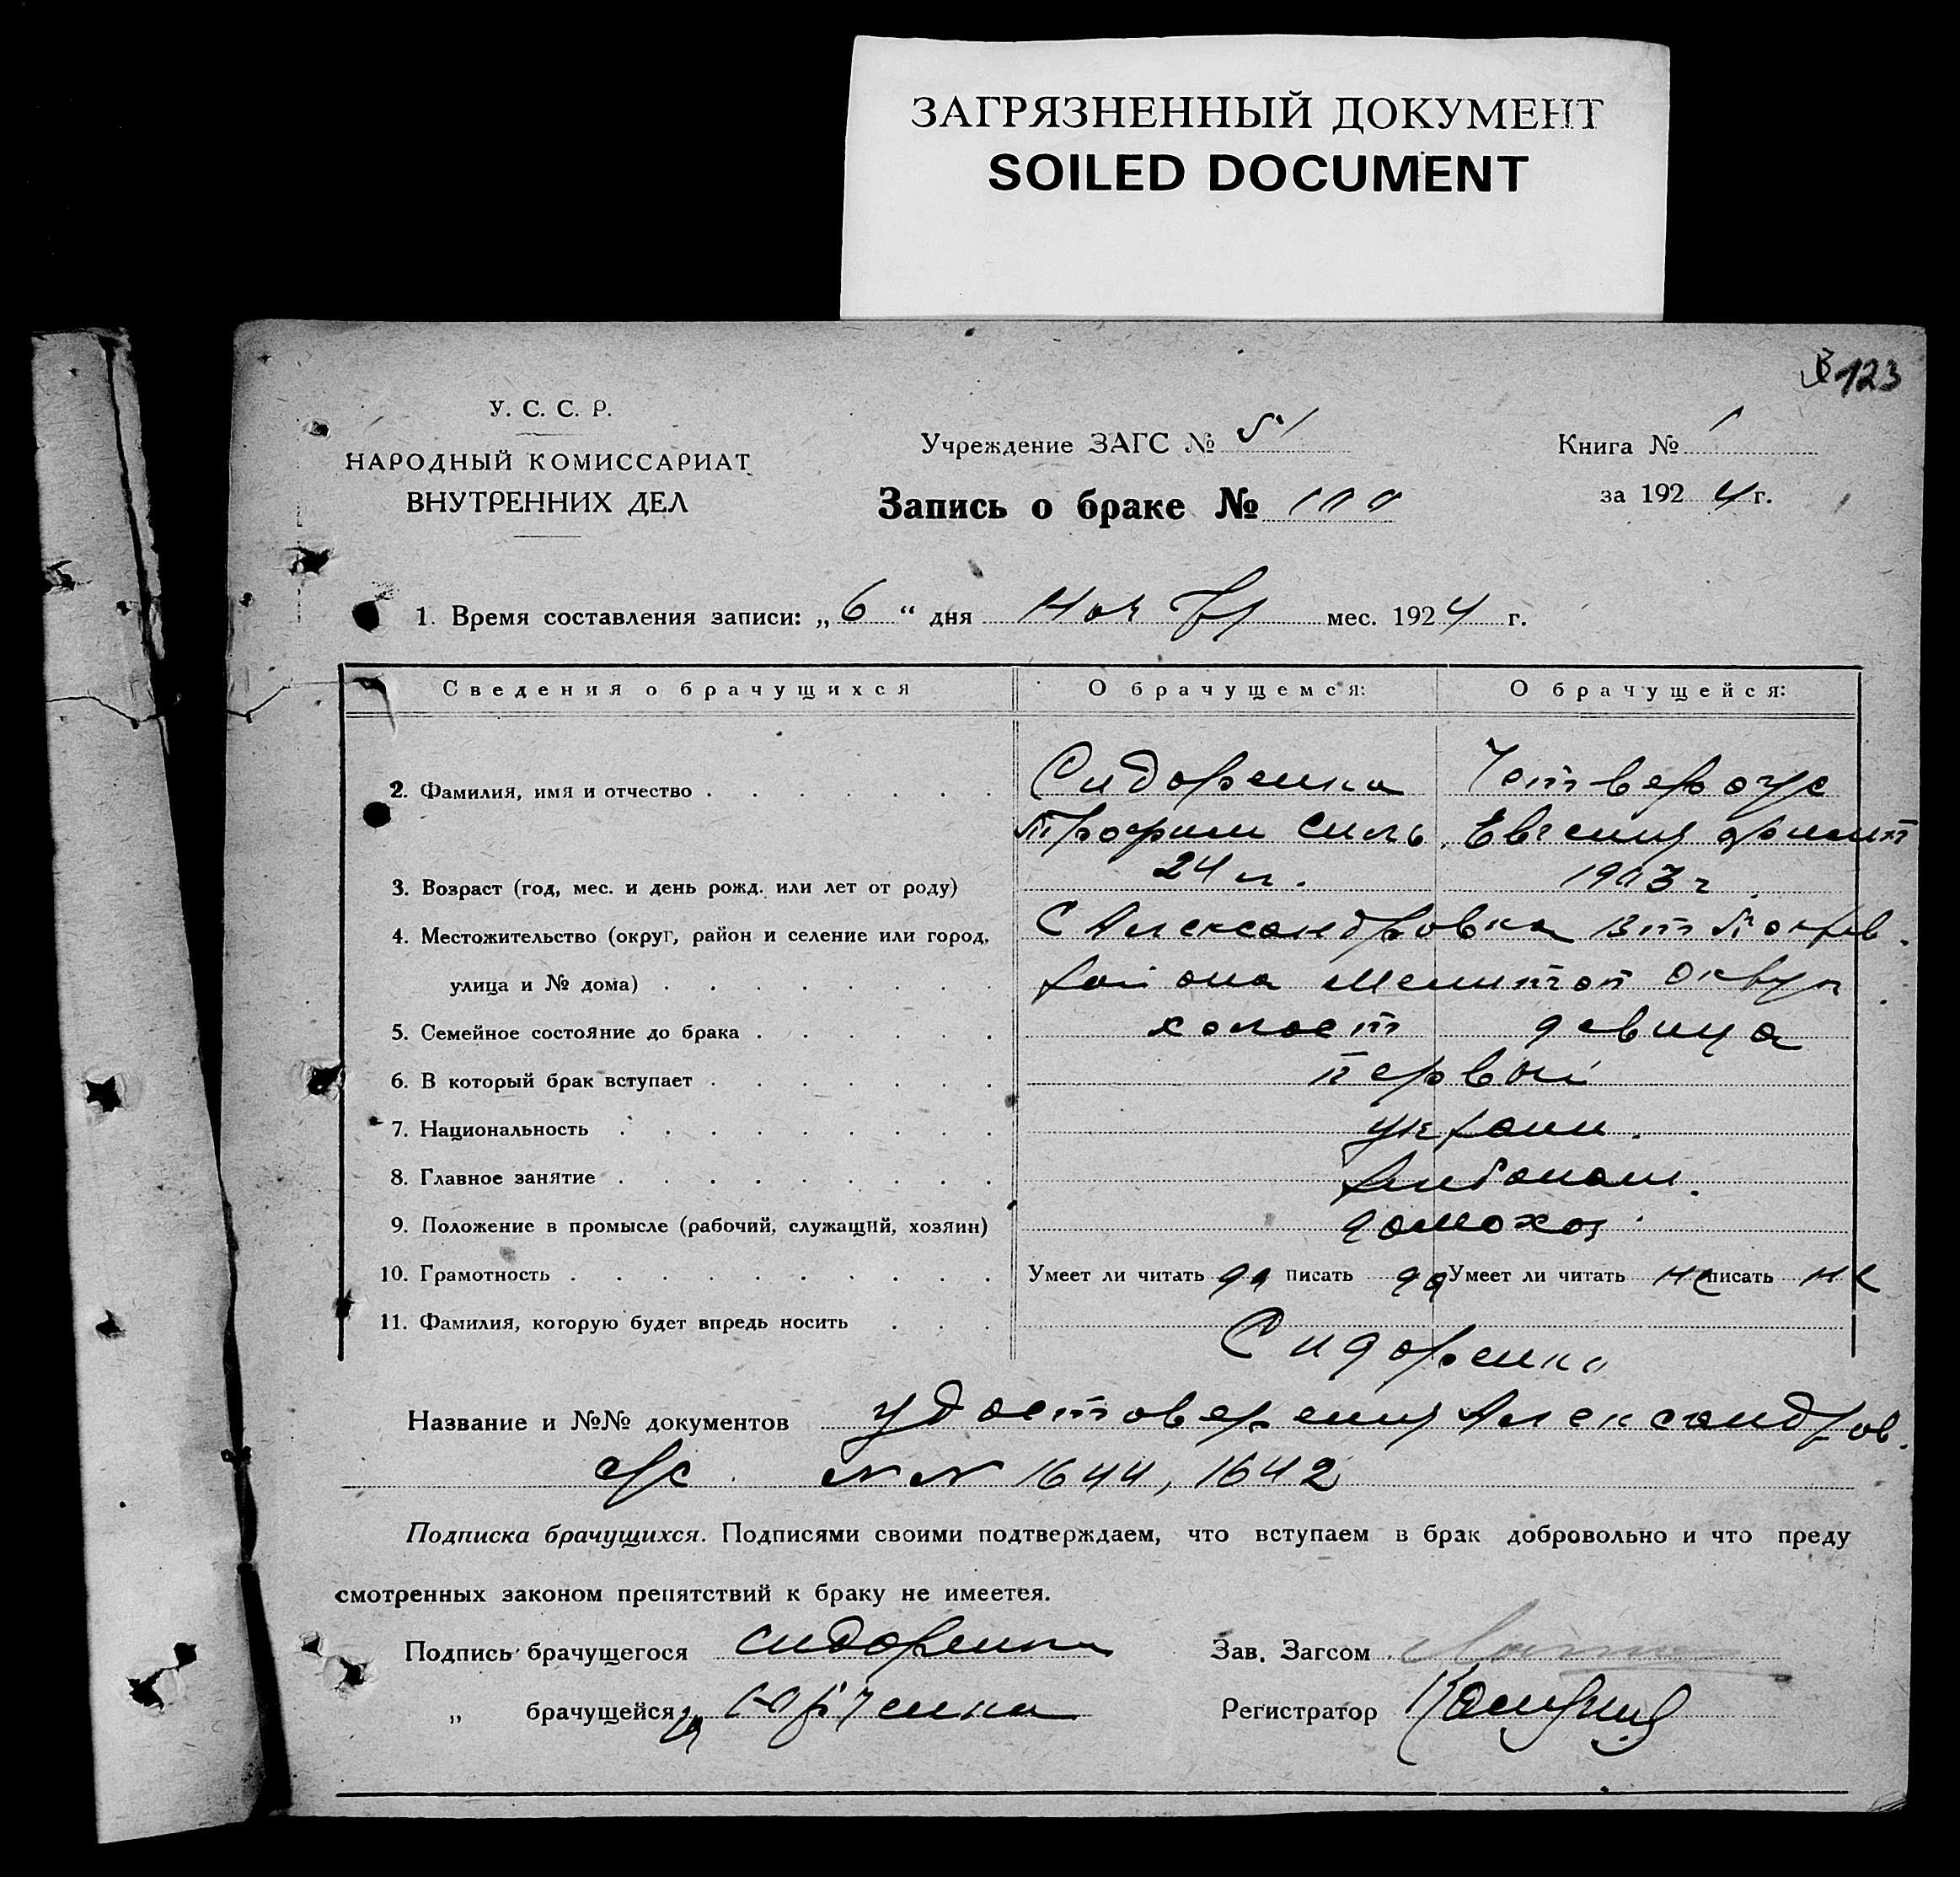 ЗАГРЯЗНЕННЫЙ ДОКУМЕНТ
SOILED DOCUMENT
123
У. С. С. Р.
НАРОДНЫЙ КОМИССАРИАТ
ВНУТРЕННИХ ДЕЛ
Учреждение ЗАГС № 51
Запись о браке №
Книга № 1
за 1924 г.
1. Время составления записи: „6“ дня мес. 1924 г.
Сведения о брачущихся О брачущемся: О брачущейся:
2. Фамилия, имя и отчество Сидоренко
Трофим Силь. Евгения
3. Возраст (год, мес. и день рожд. или лет от роду) 24 л. 1903 г
4. Местожительство (округ, район и селение или город, С Александровка
улица и № дома) района Мелитоп Округ
5. Семейное состояние до брака холост девица
6. В который брак вступает первый
7. Национальность украин.
8. Главное занятие
9. Положение в промысле (рабочий, служащий, хозяин) домохоз
10. Грамотность Умеет ли читать да писать да Умеет ли читать не писать не
11. Фамилия, которую будет впредь носить Сидоренко
Название и №№ документов удостоверения Александров.
с/с NN 1644, 1642
Подписка брачущихся. Подписями своими подтверждаем, что вступаем в брак добровольно и что преду
смотренных законом препятствий к браку не имеется.
Подпись брачущегося Сидоренко Зав. Загсом
„ брачущейся Регистратор